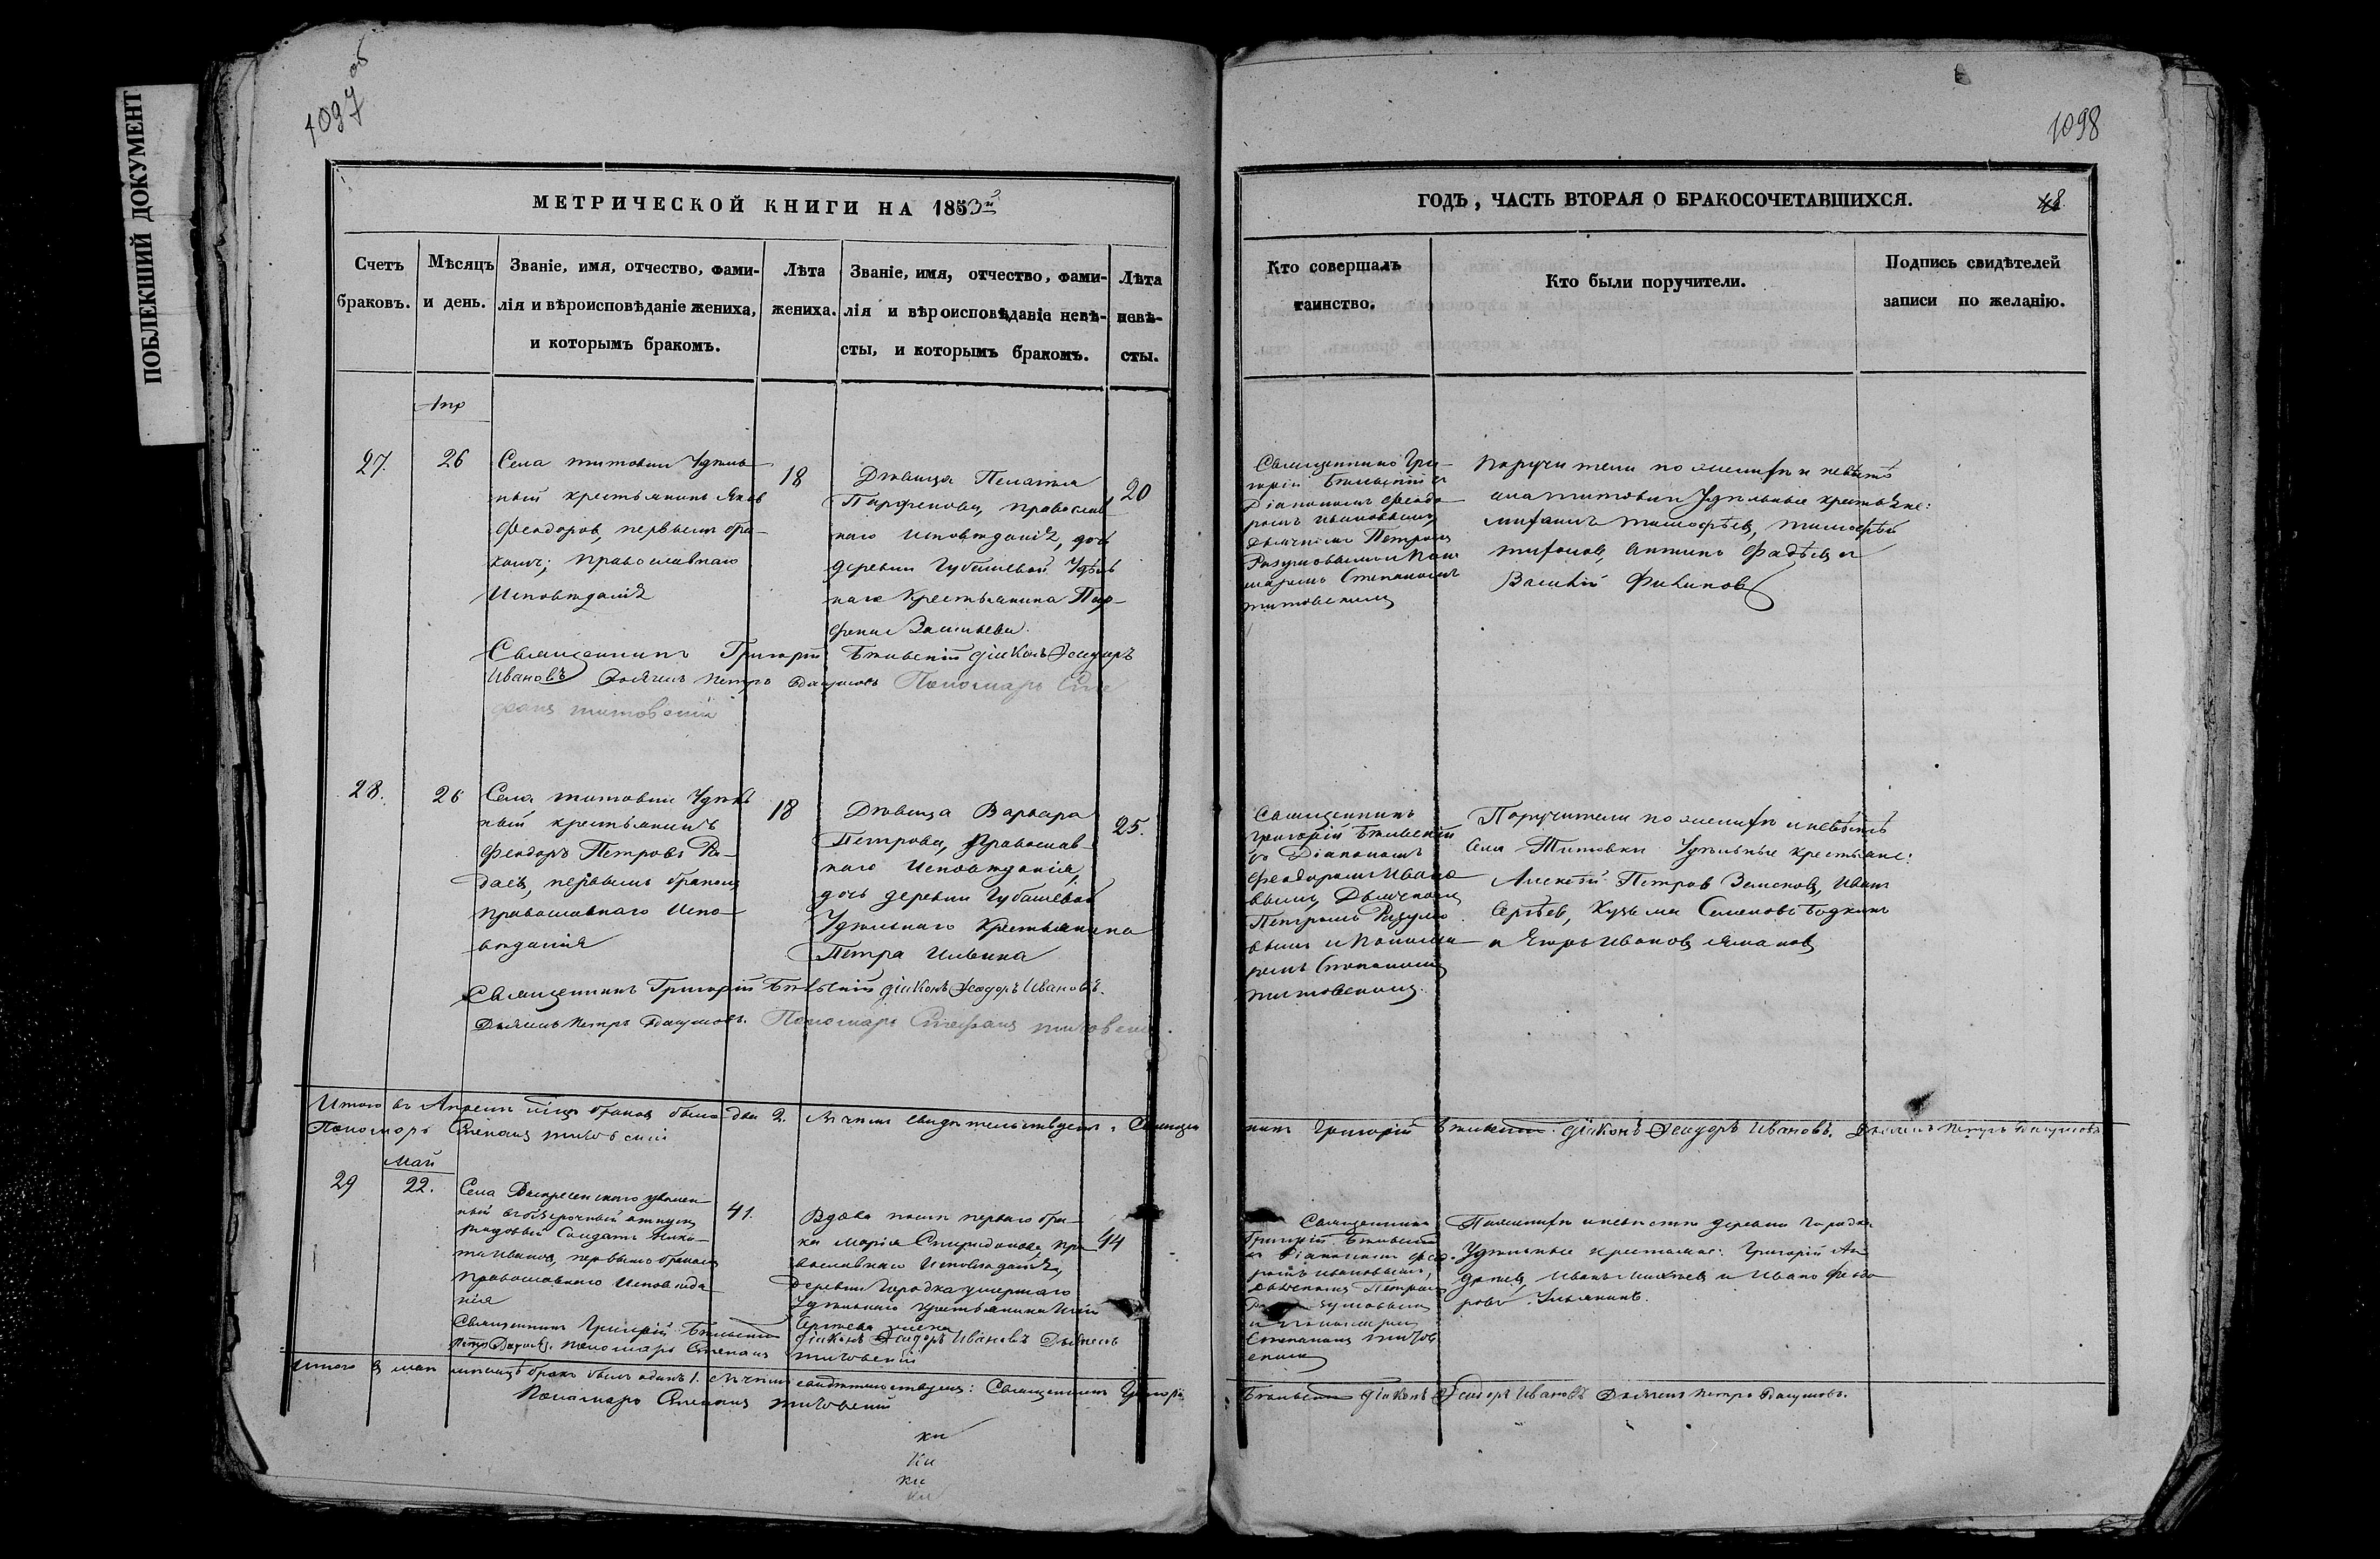 ПОБЛЕКШИЙ ДОКУМЕНТ
1097 об
МЕТРИЧЕСКОЙ КНИГИ НА 1853й
Счетъ браковъ.
Мѣсяцъ и день.
Званіе, имя, отчество, фами-
лія и вѣроисповѣданіе жениха,
и которымъ бракомъ.
Лѣта
жениха.
Званіе, имя, отчество, фами-
лія и вѣроисповѣданіе невѣ-
сты, и которымъ бракомъ.
Лѣта
невѣ-
сты.
Апр
27.
26
Села Титовки Удѣль
ный крестьянинъ Яков
Феодоров, первымъ бра-
комъ; православнаго
Исповѣданія
18
Дѣвица Пелагия
Парфенова, православ
наго исповѣданія, дочь
деревни Губашевой Удѣль
наго Крестьянина Пар-
фена Васильева.
20
Священникъ Григорій Бѣльскій діаконъ Ѳеодоръ
Ивановъ Дьячекъ Петръ Разумовъ Пономарь Сте
фанъ Титовскій
28.
26
Села Титовки Удѣль
ный крестьянинъ
Феодоръ Петровъ
первымъ бракомъ
православнаго Испо-
вѣданія
18
Дѣвица Варвара
Петрова, Православ-
наго Исповѣданія,
дочь деревни Губашевой
Удѣльнаго Крестьянина
Петра Ильина
25.
Священникъ Григорій Бѣльскій діаконъ Ѳеодоръ Ивановъ.
Дьячекъ Петръ Разумовъ. Пономарь Стефанъ Титовскій.
Итого въ Апрелѣ браков было два 2. въ чемъ свидѣтельствуемъ: Священ
Пономарь Степанъ Титовскій
Май
29
22.
Села Воскресенскаго уволен
ный въ отпускъ
рядовый Солдатъ
Иванов, первымъ бракомъ
православнаго Исповѣда
нія
41.
Вдова послѣ перваго бра-
ка Марія Спиридонова, пра
вославнаго Исповѣданія,
деревни Городка умершаго
Удѣльнаго крестьянина
Сергѣева жена
44
Священникъ Григорій Бѣльскій діаконъ Ѳеодоръ Ивановъ Дьячекъ
Петръ Разумовъ. Пономарь Степанъ Титовскій
Итого въ маѣ мѣсяцѣ бракъ былъ одинъ 1. въ чемъ свидѣтельствуемъ: Священникъ Григорій
Пономарь Степанъ Титовскій
1098
ГОДЪ, ЧАСТЬ ВТОРАЯ О БРАКОСОЧЕТАВШИХСЯ.
Кто совершалъ
таинство.
Кто были поручители.
Подпись свидѣтелей
записи по желанію.
Священникъ Гри-
горій Бѣльскій съ
Діакономъ Феодо-
ромъ Ивановымъ,
Дьячкомъ Петромъ
Разумовымъ и Поно
маремъ Степаномъ
Титовскимъ
Поручители по женихѣ и невѣстѣ
села Титовки Удѣльные крестьяне:
Тимофѣев, Тимофѣй
Антипъ Фадѣев и
Василій Филипов
Священникъ
Григорій Бѣльскій
съ Діакономъ
Феодоромъ Ивано
вымъ, Дьячкомъ
Петромъ Разумо
вымъ и Понома
ремъ Степаномъ
Титовскимъ.
Поручители по женихѣ и невѣстѣ
Села Титовки Удѣльные крестьяне:
Алексѣй Петров Иванъ
Сергѣев, Кузьма Семеновъ
и Егоръ Иванов
никъ Григорій Бѣльскій діаконъ Ѳеодоръ Ивановъ. Дьячекъ Петръ Разумовъ
Священникъ
Григорій Бѣльскій
съ Діакономъ Фео
ромъ Ивановымъ,
Дьячкомъ Петромъ
Разумовымъ
и Пономаремъ
Степаномъ Титов
скимъ
По женихѣ и невѣстѣ деревни Городка
Удѣльные крестьяне: Григорій
Иванъ и Иванъ Феодо
ровъ
Бѣльскій діаконъ Ѳеодоръ Ивановъ Дьячекъ Петръ Разумовъ.
ки
ки
ки
ки